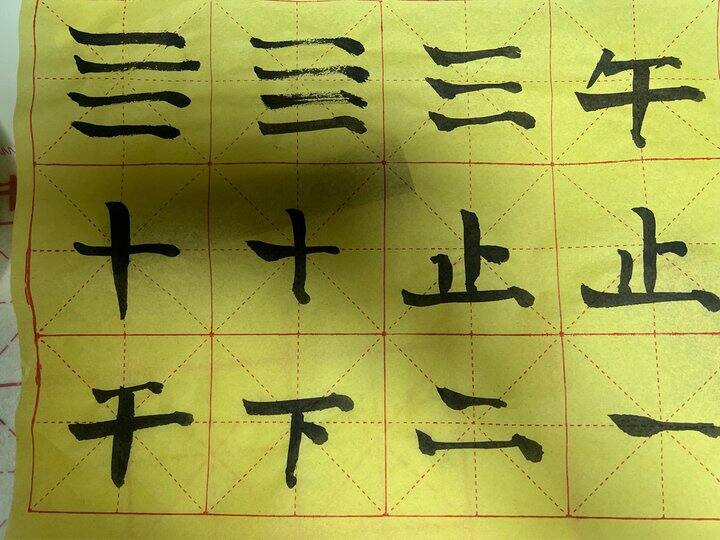 亖亖三午
十十止止
干下二一